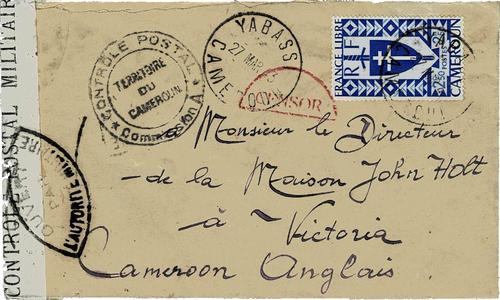 CONTROLE POSTAL MILITAIRE
OUVERT
PAR
L'AUTORITÉ MILITAIRE
CONTROLE POSTAL
TERRITOIRE
DU
CAMEROUN
Commission A
YABASSI
27 MAR
CAMEROUN
CENSOR
FRANCE LIBRE
RF
2f50
POSTES
CAMEROUN
Monsieur le Directeur
de la Maison John Holt
à Victoria
Cameroon Anglais